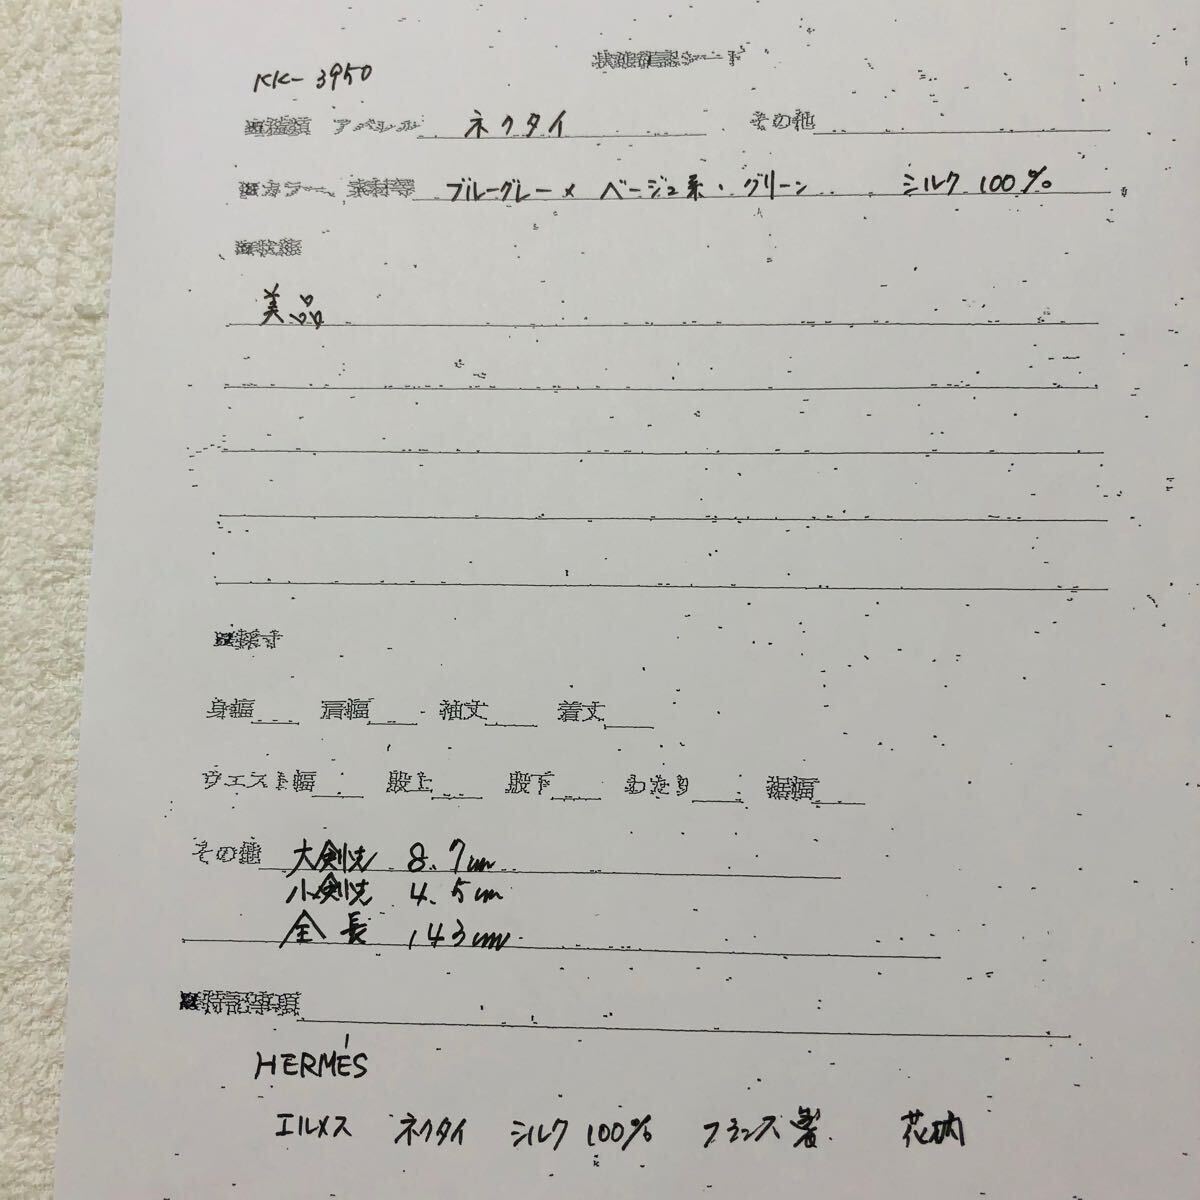 状態確認シート
KK-3950
■種類 アパレル ネクタイ その他
■カラー、素材等 ブルーグレー× ベージュ系・グリーン シルク100%
■状態
美品
■採寸
身幅 肩幅 袖丈 着丈
ウエスト幅 股上 股下 わたり 裾幅
その他 大剣先 8.7cm
小剣先 4.5cm
全長 143cm
■特記事項
HERMÈS
エルメス ネクタイ シルク100% フランス製 花柄